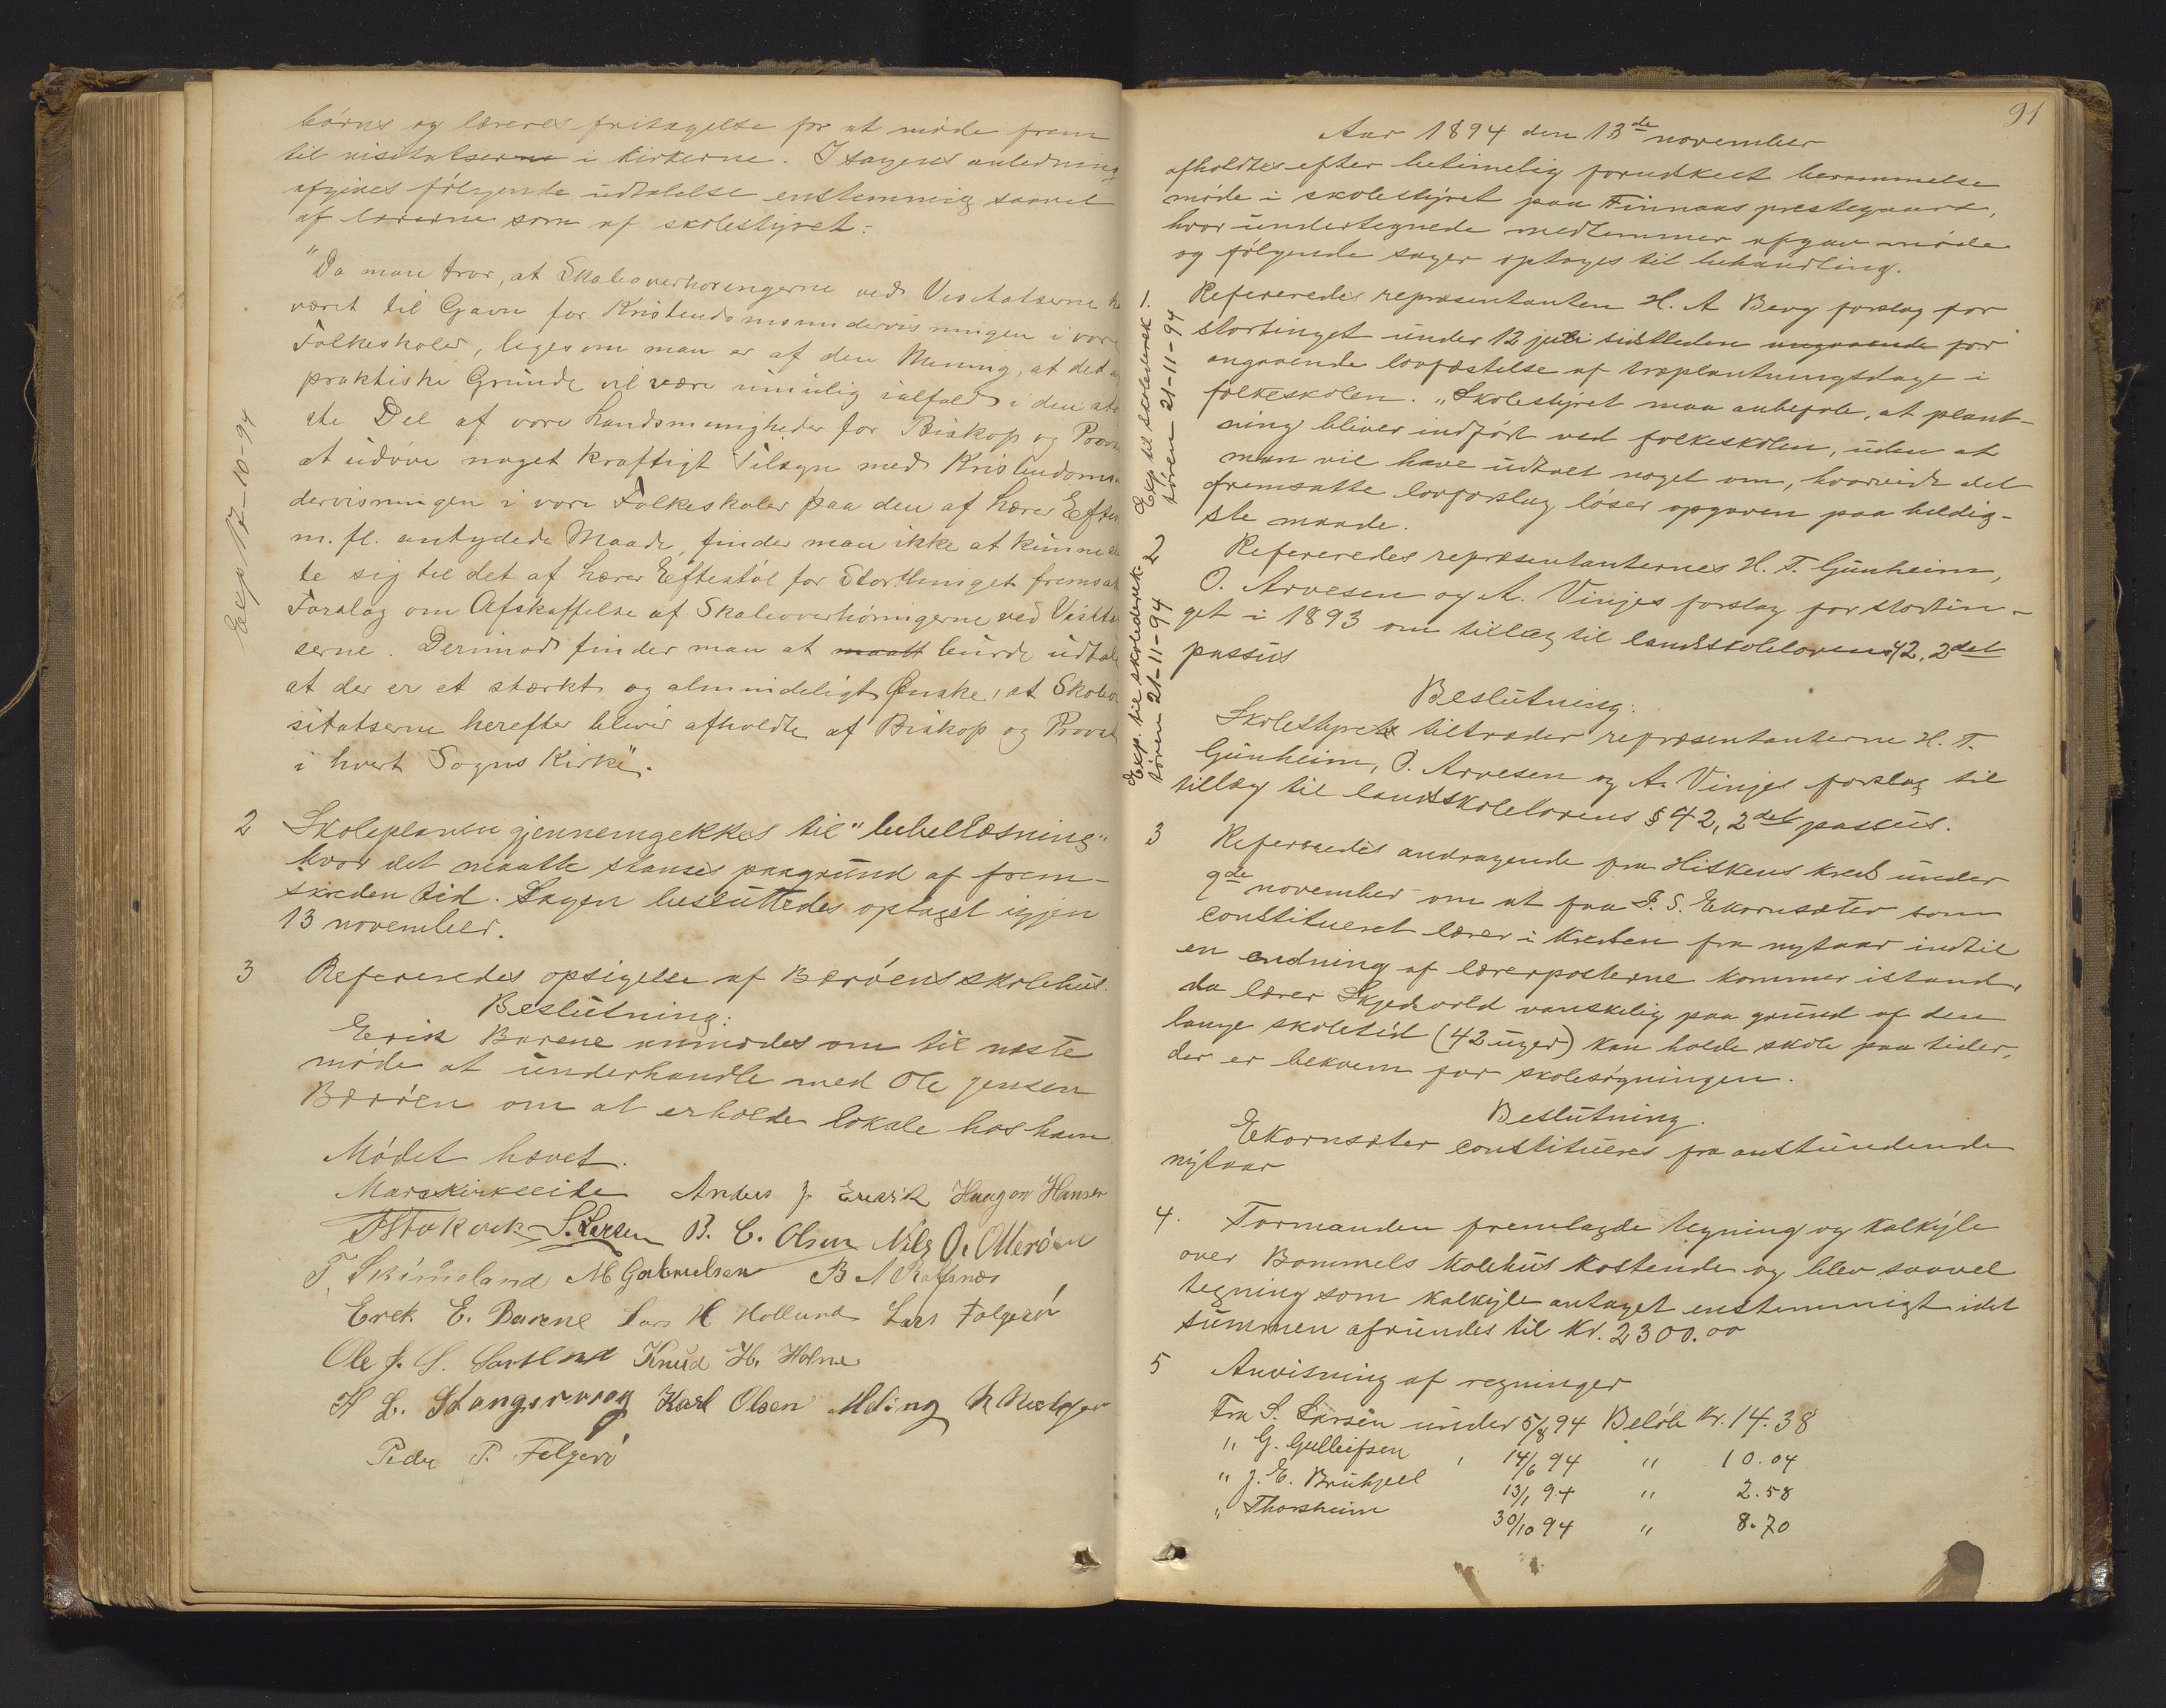 børns og læreres fritagelse for at møde frem
til visitatserne i kirkerne. I sagens anledning
afgives følgende udtalelse enstemmig saavel
af lærerne som af skolestyret:
"Da man tror, at Skoleoverhøringerne ved Visitatserne ha
været til Gavn for Kristendomsundervisningen i vore
Folkeskoler, ligesom man er af den Mening, at det af
praktiske Grunde vil være umulig ialfald i den stør
ste Del af vore Landsmenigheder for Biskop og Provst
at udøve noget kraftigt Tilsyn med Kristendomsun
dervisningen i vore Folkeskoler paa den af Lærer Eftes
m. fl. antydede Maade, finder man ikke at kunne slu
te sig til det af Lærer Eftestøl for Storthinget fremsat
Forslag om Afskaffelse af Skoleoverhøringerne ved Visita
serne. Derimod finder man at maatt burde udtale
at der er et stærkt og almindeligt Ønske, at Skolevi
sitatserne herefter bliver afholdte af Biskop og Provst
i hvert Sogns Kirke".
Exp 17-10-94
2 Skoleplanen gjennemgekkes til "bibellæsning"
hvor det maatte stanses paagrund af frem-
skreden tid. Sagen besluttedes optaget igjen
13 november.
3 Refereredes opsigelse af Bærøens skolehus.
Beslutning:
Erik Barene anmodes om til næste
møde at underhandle med Ole Jensen
Bærøen om at erholde lokale hos ham.
Mødet hævet.
Anders J. Haagon Hansen
S. Larsen B. C. Olsen Nils O. Otterøen
T. Skimeland M Gabrielsen
Erik E. Barene Lars H. Holland Lars Folgerø
Ole J. Knud H. Holme
H L. Stangervaag Karl Olsen Meling
Peder P. Folgerø
91
Aar 1894 den 13de november
afholdtes efter betimelig forudkuet berammelse
møde i skolestyret paa Finnaas prestegaard,
hvor undertegnede medlemmer afgav møde
og følgende sager optoges til behandling.
1. Refereredes repræsentanten H. A Berg forslag for
stortinget under 12 juli sidstleden angaaende for
angaaende lovfæstelse af træplantningsdage i
folkeskolen. "Skolestyret maa anbefale, at plant-
ning bliver indført ved folkeskolen, uden at
man vil have udtalt noget om, hvorvidt det
fremsatte lovforslag løser opgaven paa heldig-
ste maade.
Exp til skoledirek
tøren 21-11-94
2) Refereredes repræsentanternes H. T. Gunheim,
O. Arvesen og A. Vinjes forslag for stortin-
get i 1893 om tillæg til landsskoleloven § 42, 2det
passus
Exp. til skoledirek
tøren 21-11-94
Beslutning:
Skolestyret tiltræder repræsentanterne H. T.
Gunheim, O. Arvesen og A. Vinjes forslag til
tillæg til landsskolelovens § 42, 2det passus.
3 Refereredes andragende fra Hiskens kreds under
9de november om at faa S. Ekornsæter som
constitueret lærer i kredsen fra nytaar indtil
en endning af lærerposterne kommer istand,
da lærer Skjedsvold vanskelig paa grund af den
lange skoletid (42 uger) kan holde skole paa tider,
der er bekvem for skolesøgningen.
Beslutning.
Ekornsæter constitueres fra anstundende
nytaar
4. Formanden fremlagde tegning og kalkyle
over Bømmels skolehus kostende og blev saavel
tegning som kalkyle antaget enstemmigt idet
summen afrundes til kr. 2300.00
5 Anvisning af regninger
Fra S. Larsen under 5/8 94 Beløb kr. 14.38
" G. Gulleifsen " 14/6 94 " 10.04
" J. E. Bruhjell 13/1 94 " 2.58
" Thorsheim 30/10 94 " 8.70